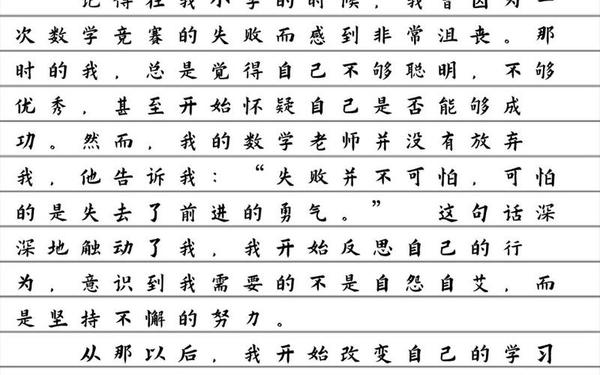 记得在我小学的时候，我曾因为一
次数学竞赛的失败而感到非常沮丧。那
时的我，总是觉得自己不够聪明，不够
优秀，甚至开始怀疑自己是否能够成
功。然而，我的数学老师并没有放弃
我，他告诉我：“失败并不可怕，可怕
的是失去了前进的勇气。” 这句话深
深地触动了我，我开始反思自己的行
为，意识到我需要的不是自怨自艾，而
是坚持不懈的努力。
从那以后，我开始改变自己的学习